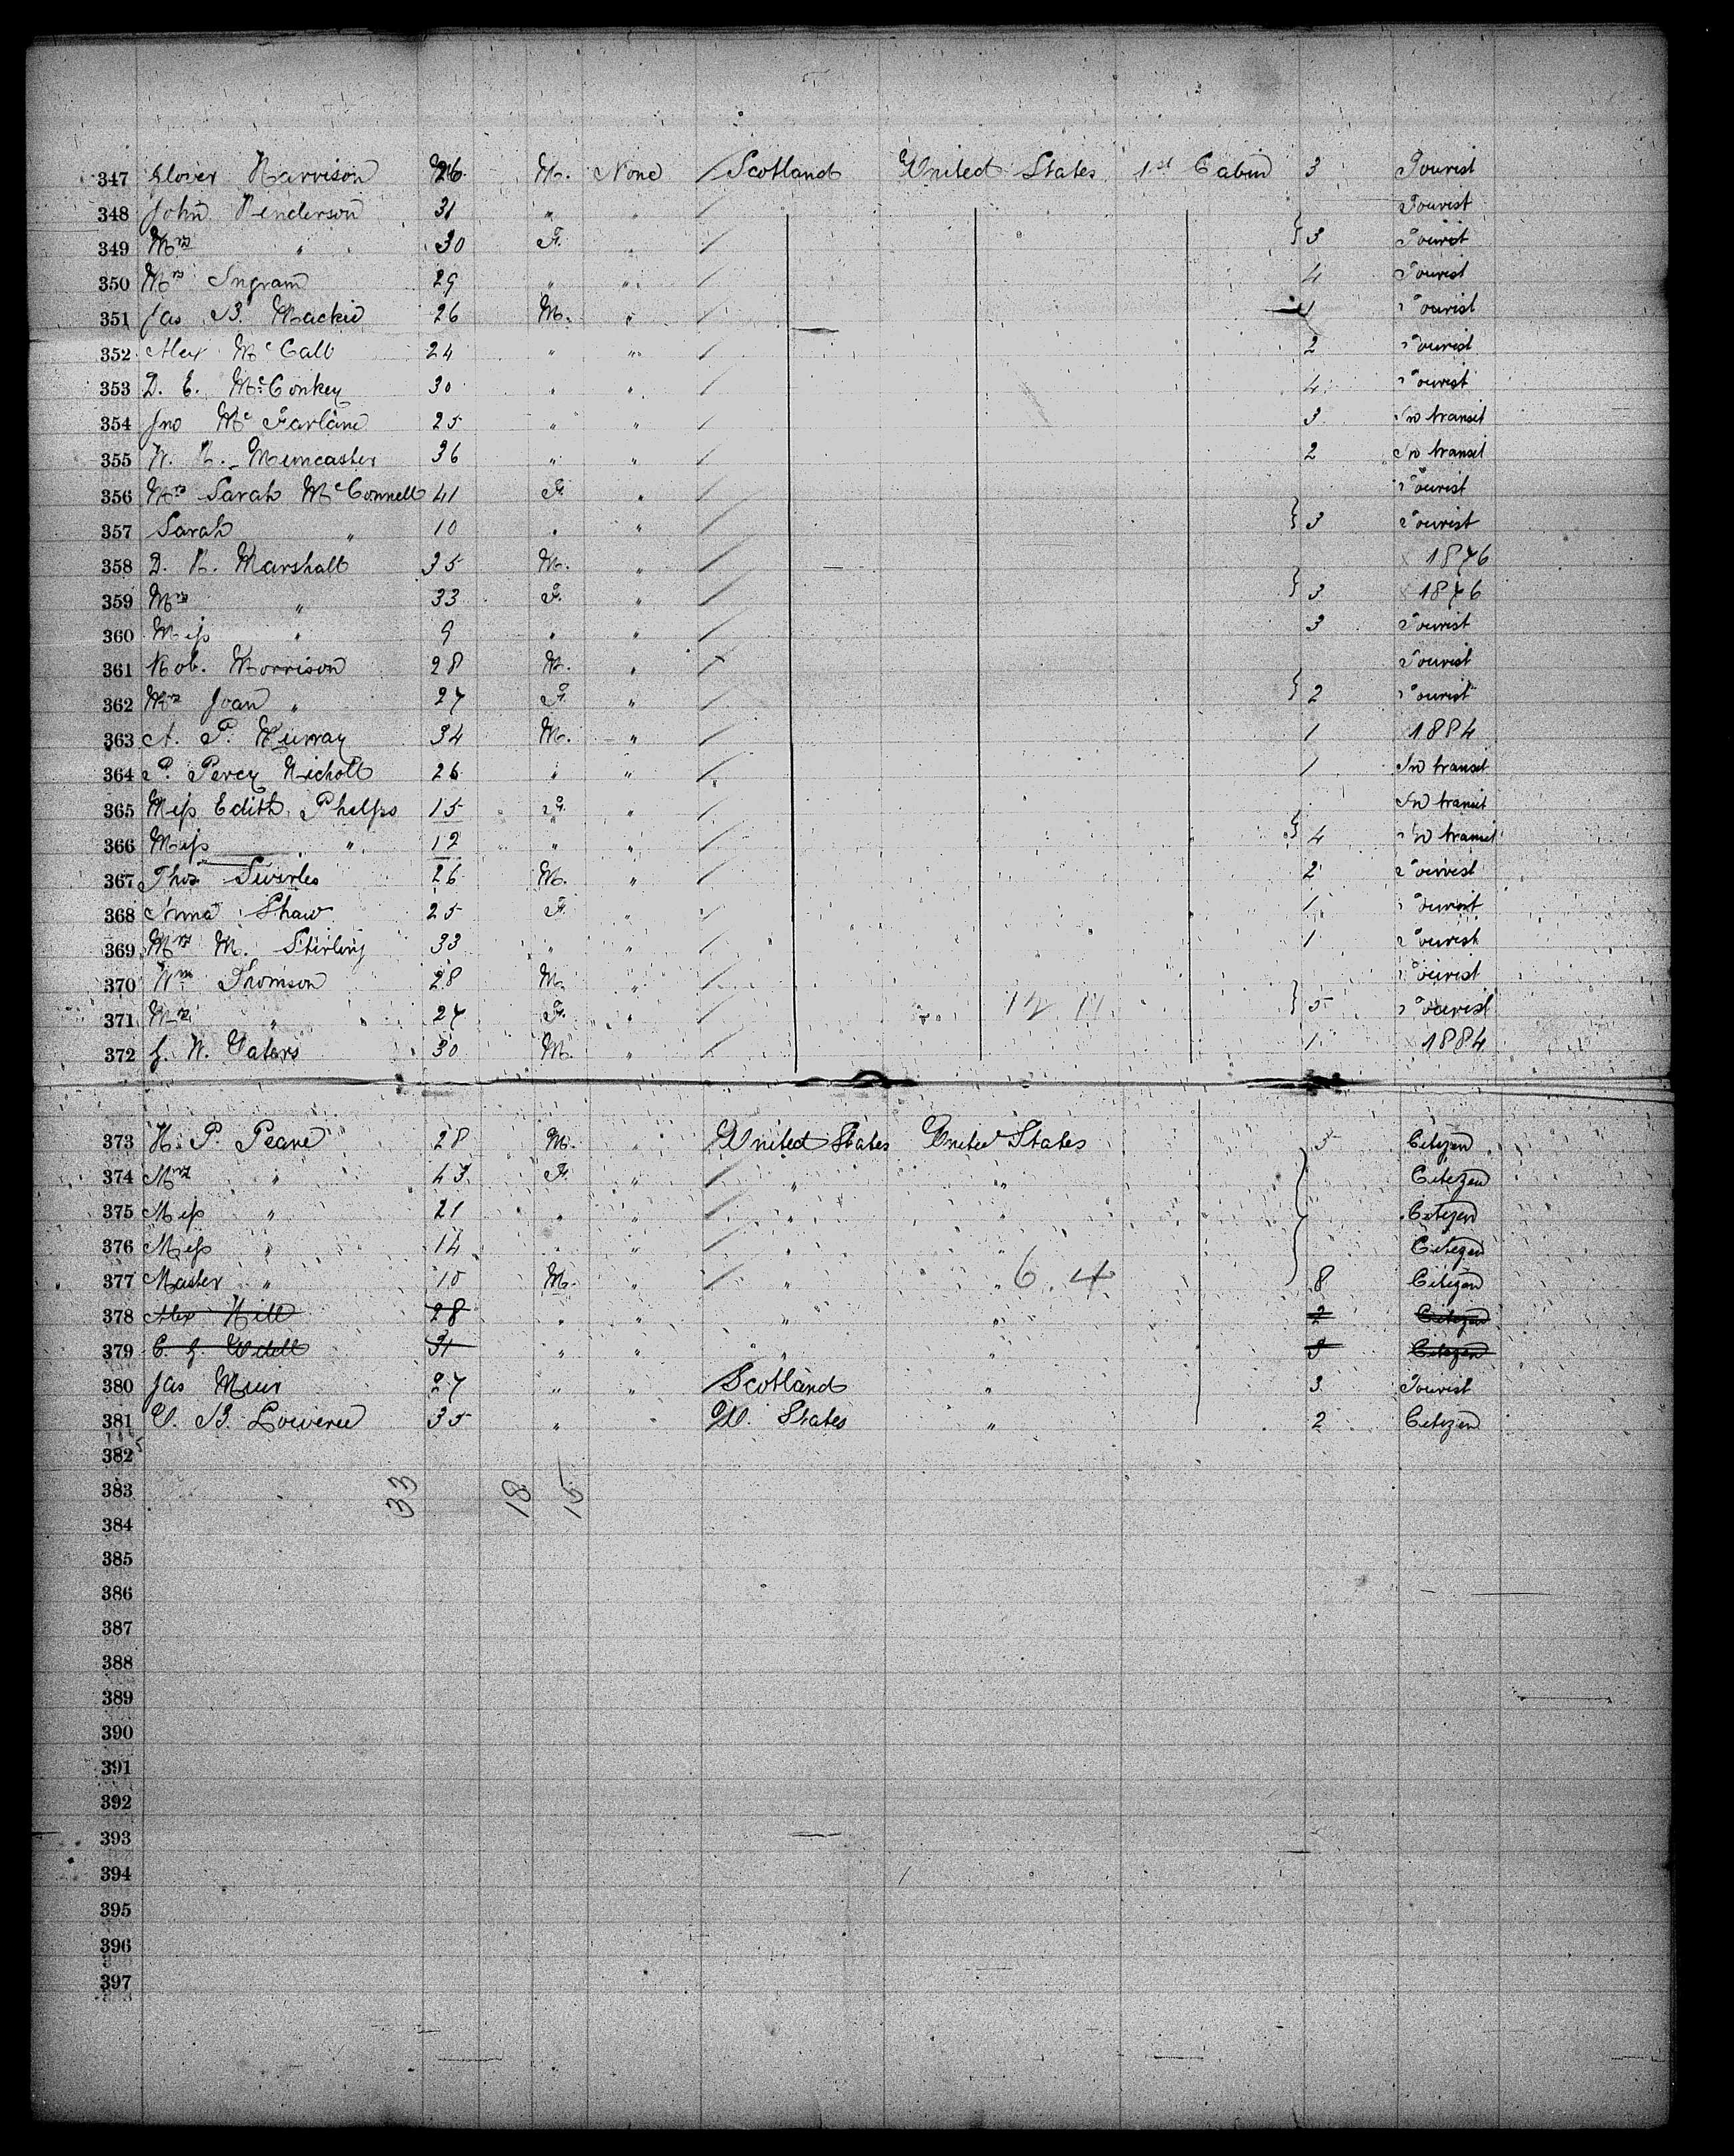 347 Glover Harrison 26 M. None Scotland United States 1st Cabin 3 Tourist
348 John Henderson 31 " " Tourist
349 Mrs " 30 F. " } 3 Tourist
350 Mrs Ingram 29 " " 4 Tourist
351 Jas B. Mackie 26 M. " 4 Tourist
352 Alex McCall 24 " " 2 Tourist
353 D. E. McConkey 30 " " 4 Tourist
354 Jno McFarlane 25 " " 3 In transit
355 W. H. Muncaster 36 " " 2 In transit
356 Mrs Sarah McConnell 41 F. " Tourist
357 Sarah " 10 " " } 3 Tourist
358 D. H. Marshall 35 M. " 1876
359 Mrs " 33 F. " } 3 1876
360 Miss " 9 " " 3 Tourist
361 Rob. Morrison 28 M. " Tourist
362 Mrs Joan " 27 F. " } 2 Tourist
363 A. P. Murray 34 M. " 1 1884
364 P. Percy Nicholl 26 " " 1 In transit
365 Miss Edith Phelps 15 F. " In transit
366 Miss " 12 " " } 4 In transit
367 Thos Swirles 26 M. " 2 Tourist
368 Anna Shaw 25 F. " 1 Tourist
369 Mrs M. Stirling 33 " " 1 Tourist
370 Wm Thomson 28 M. " Tourist
371 Mrs " 27 F. " 12 11 } 5 Tourist
372 G. W. Yates 30 M. " 1 1884
373 H. P. Peare 28 M. " United States United States 5 Citizen
374 Mrs " 43 F. " " " Citizen
375 Miss " 21 " " " " Citizen
376 Miss " 14 " " " " Citizen
377 Master " 10 M. " " " 6 4 8 Citizen
378 Alex Hill 28 " " " " 2 Citizen
379 C. G. Udell 31 " " " " 3 Citizen
380 Jas Muir 27 " " Scotland " 3 Tourist
381 35 " U. States " 2 Citizen
382
383 33 18 15
384
385
386
387
388
389
390
391
392
393
394
395
396
397